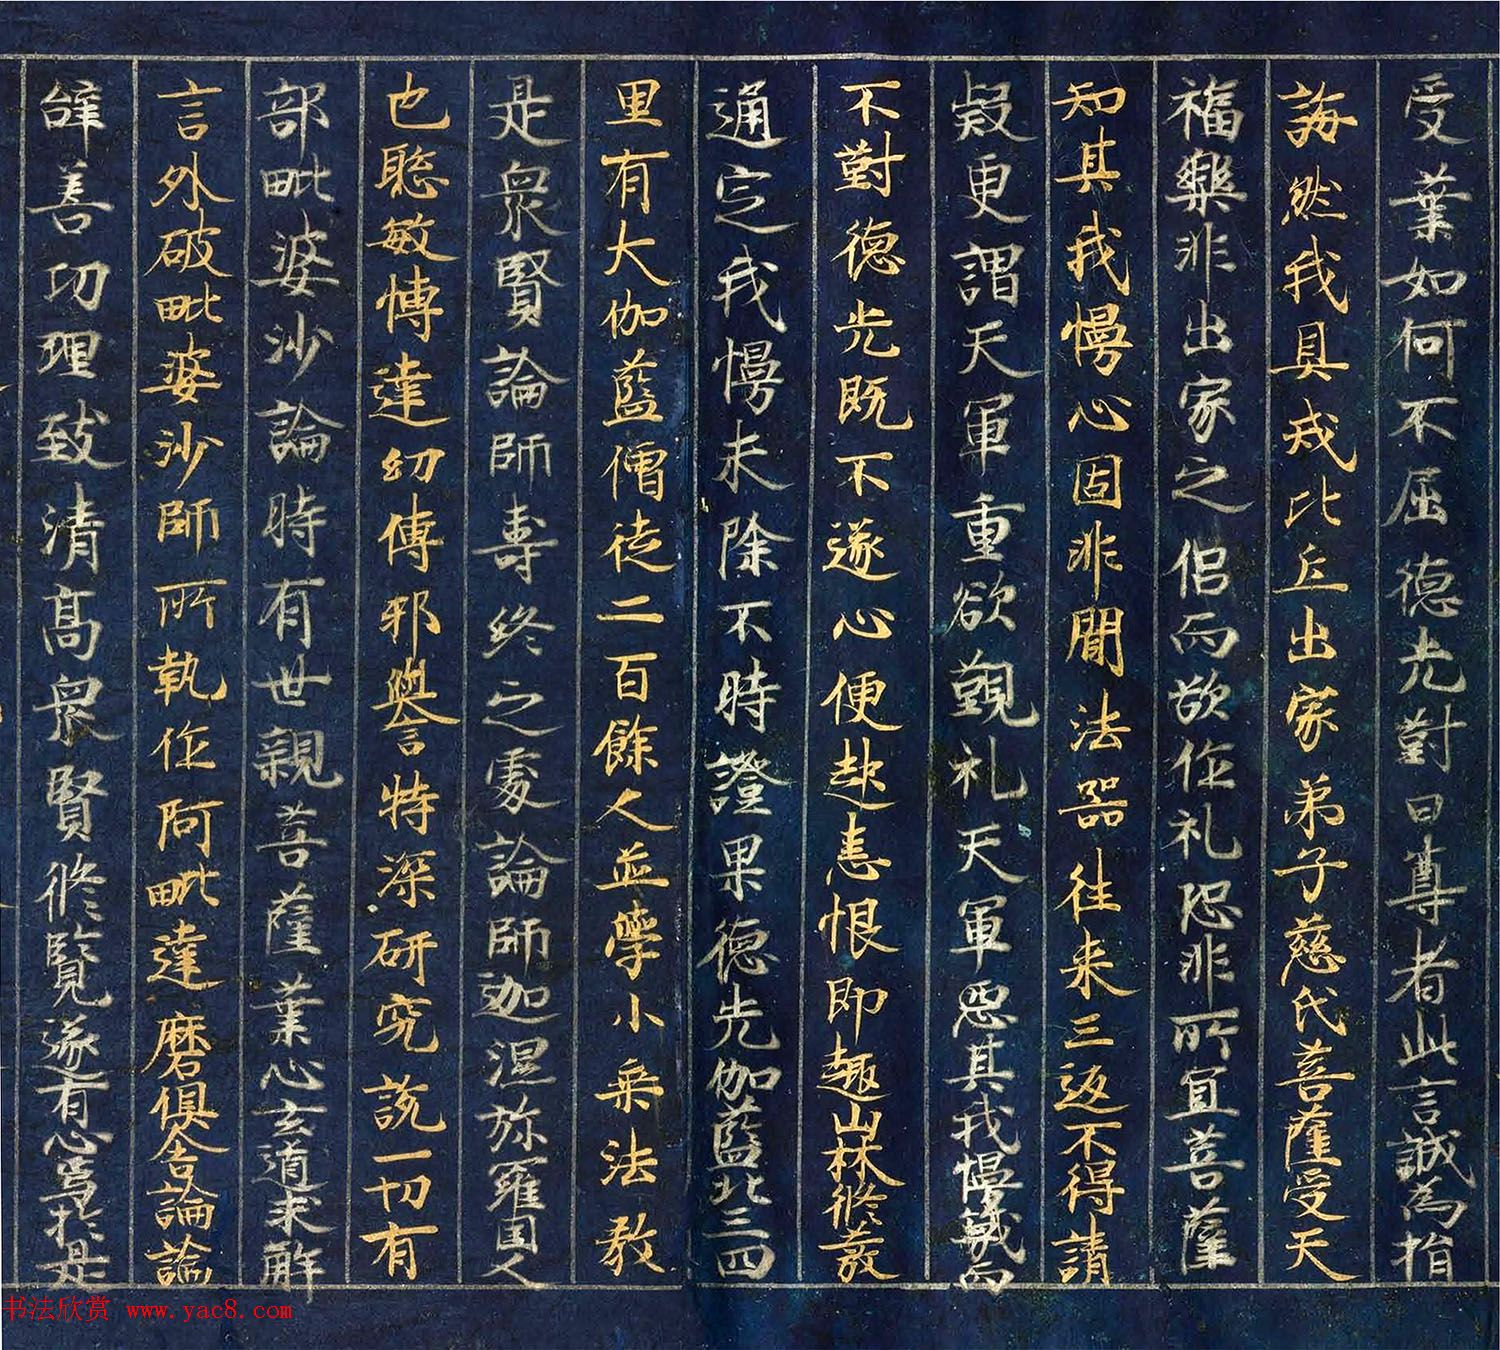 受葉如何不屈德光對曰尊者此言誠為指
誨然我具戒比丘出家弟子慈氏菩薩受天
福樂非出家之侶而欲作礼恐非所宜菩薩
知其我慢心固非聞法器往来三返不得請
疑更謂天軍重欲覲礼天軍惡其我慢蔑而
不對德光既不遂心便起恚恨即趣山林修發
通定我慢未除不時證果德光伽藍北三四
里有大伽藍僧徒二百餘人並學小乘法教
是衆賢論師壽終之處論師迦濕弥羅国人
也聡敏博達幼傳邪譽特深研究説一切有
部毗婆沙論時有世親菩薩葉心玄道求解
言外破毗婆沙師所執作阿毗達磨俱舍論論
辭善切理致清髙衆賢修覧遂有心焉扵是
书法欣赏 www.yac8.com